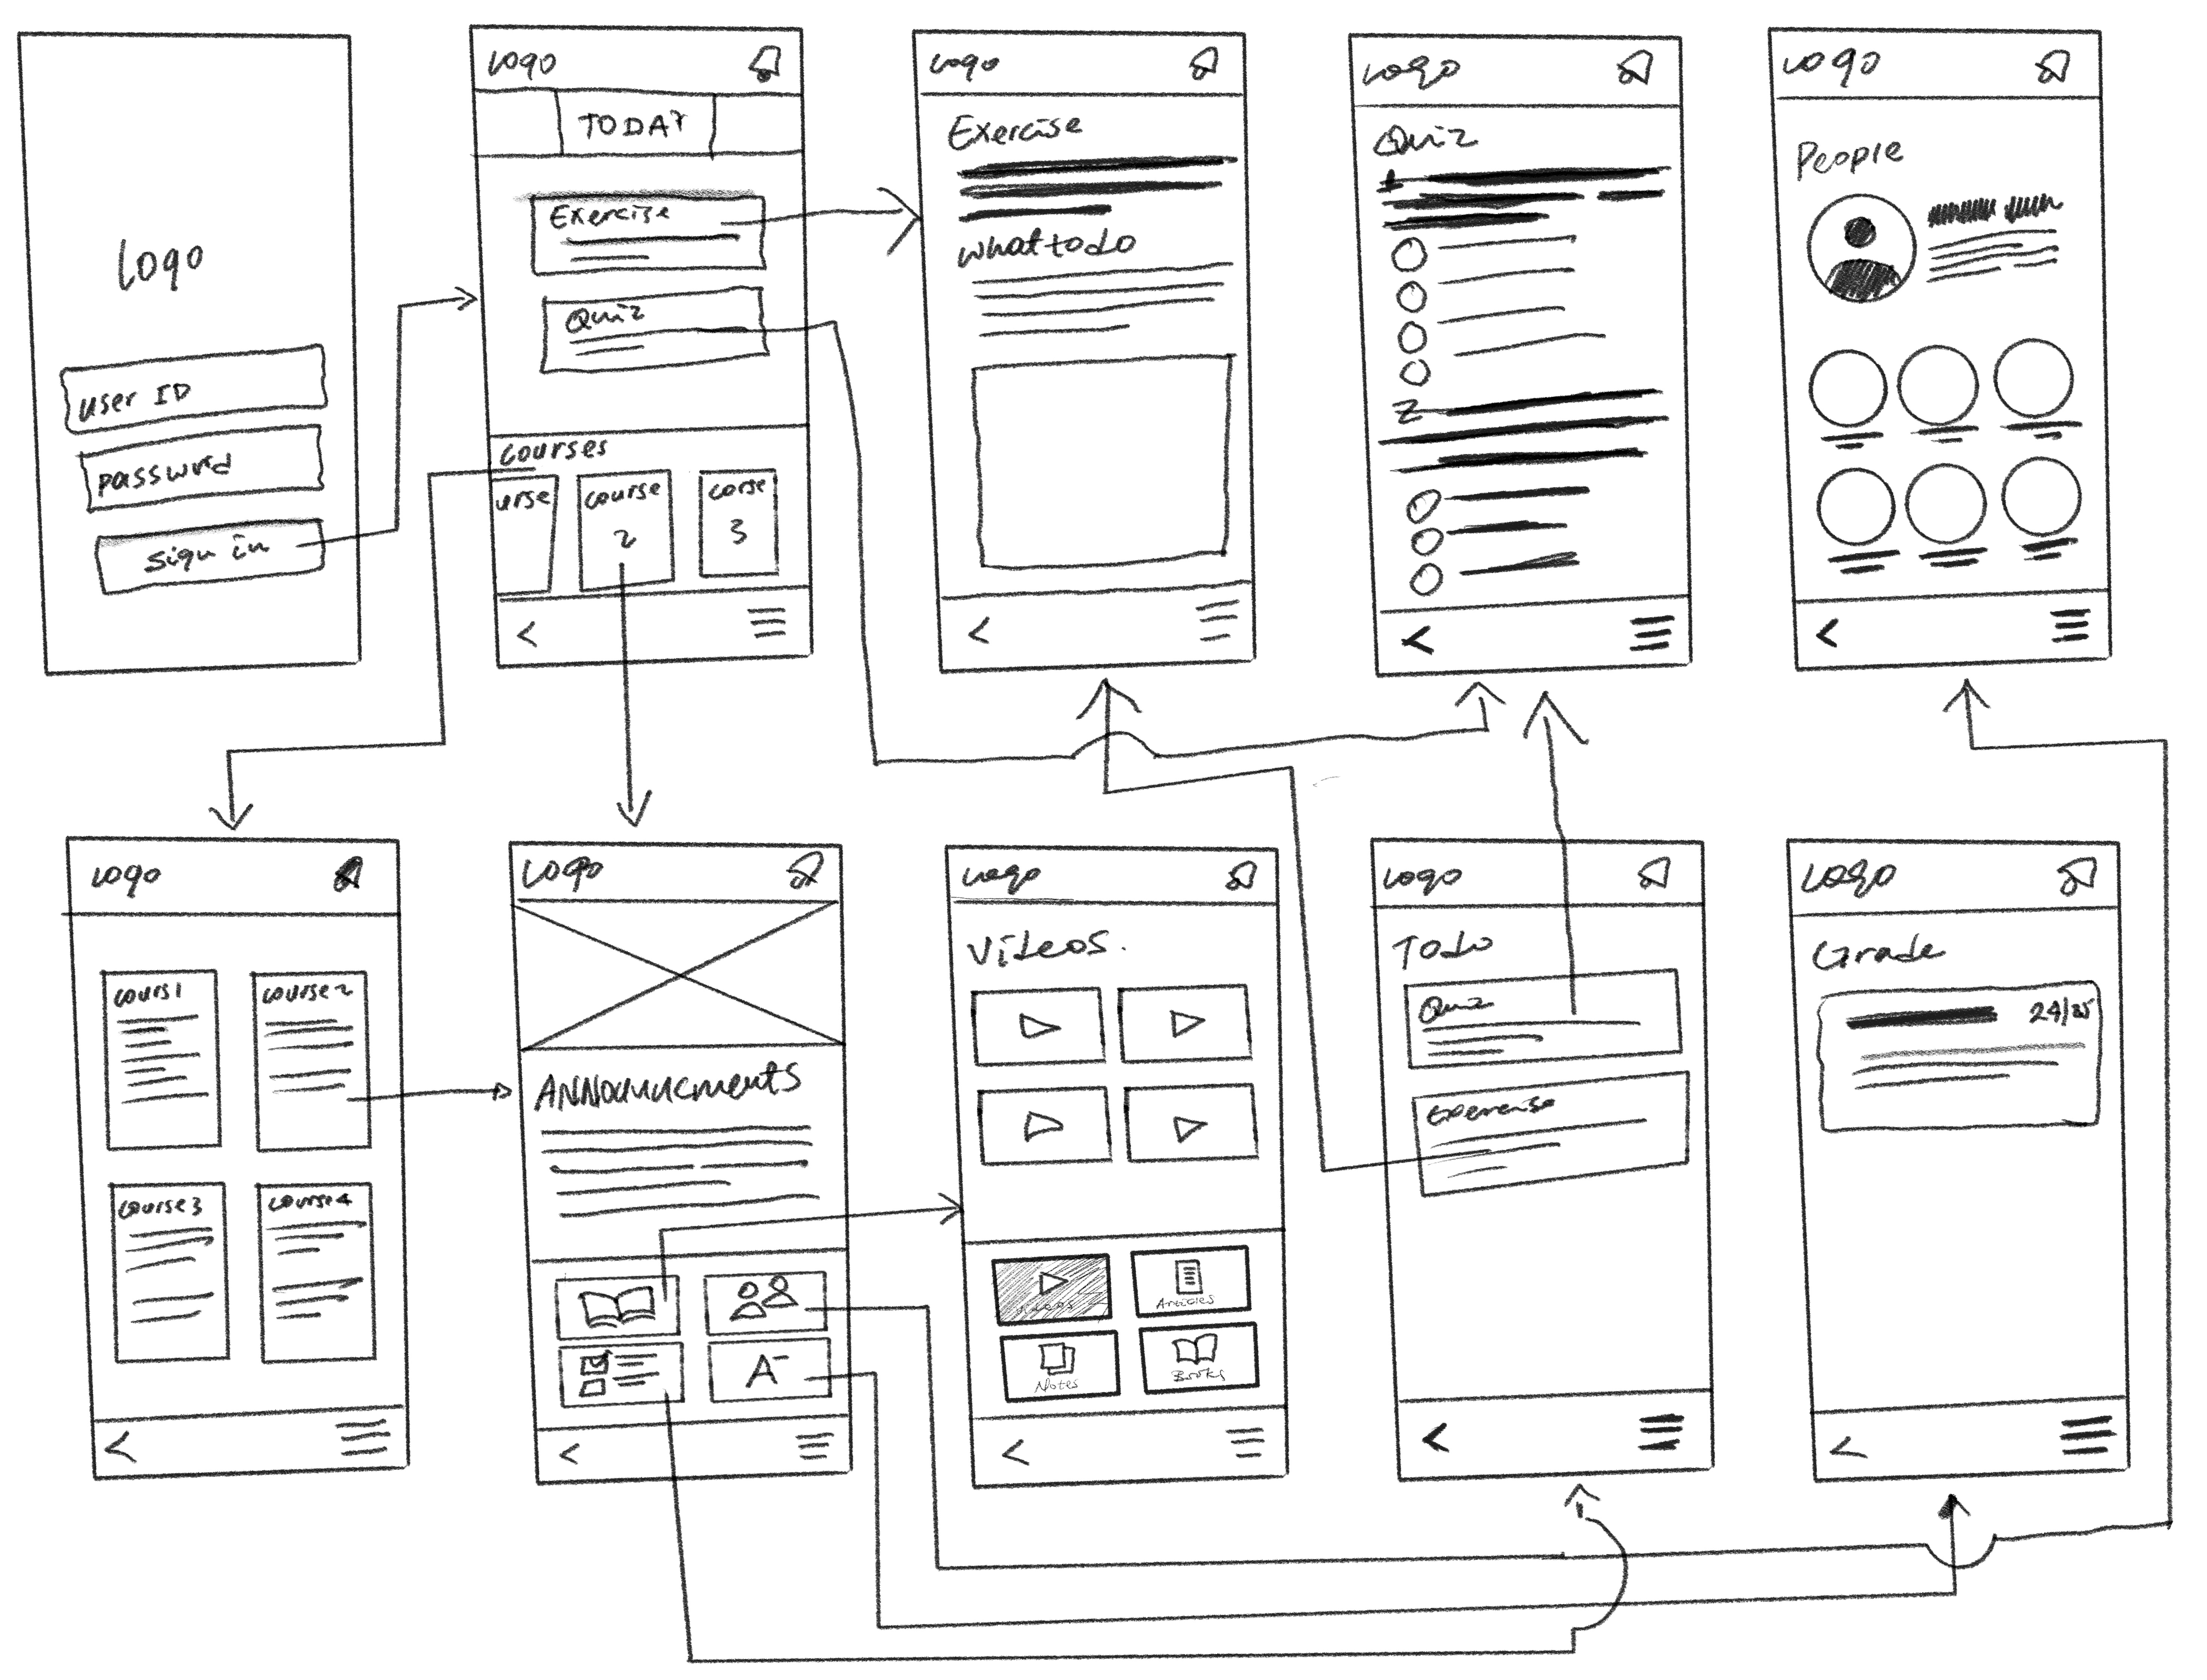 Logo
user ID
password
sign in
Logo
TODAY
Exercise
Quiz
courses
urse
course
2
corse
3
Logo
Exercise
what to do
Logo
Quiz
1
2
Logo
People
Logo
cours1
course2
course3
course4
Logo
ANNouncments
A-
Logo
Videos.
Videos
Articles
Notes
Books
Logo
Todo
Quiz
Exercise
Logo
Grade